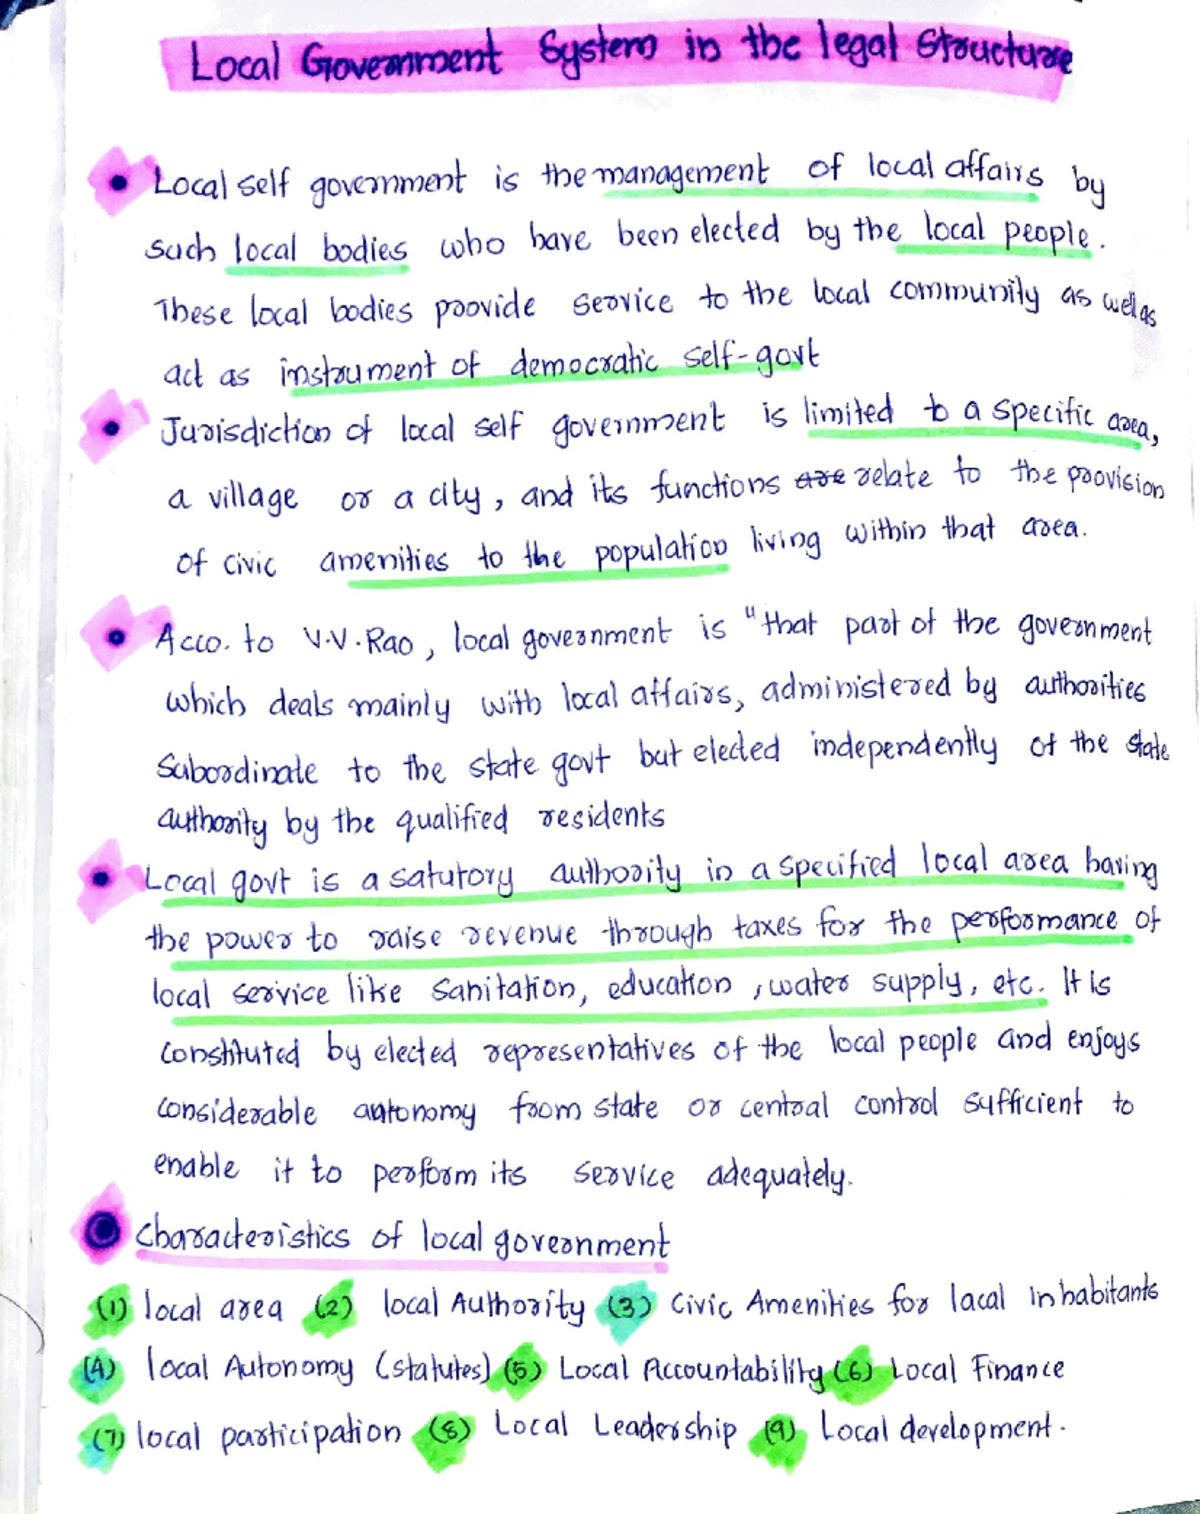 Local Government System in the legal Structure
Local self government is the management of local affairs by
such local bodies who have been elected by the local people.
These local bodies provide service to the local community as well as
act as instrument of democratic self-govt
Jurisdiction of local self government is limited to a specific area,
a village or a city, and its functions are relate to the provision
of civic amenities to the population living within that area.
Acco. to V.V.Rao, local government is "that part of the government
which deals mainly with local affairs, administered by authorities
subordinate to the state govt but elected independently of the state
authority by the qualified residents
Local govt is a satutory authority in a specified local area having
the power to raise revenue through taxes for the performance of
local service like sanitation, education, water supply, etc. It is
constituted by elected representatives of the local people and enjoys
considerable autonomy from state or central control sufficient to
enable it to perform its service adequately.
Characteristics of local government
(1) local area (2) local Authority (3) Civic Amenities for lacal inhabitants
(4) local Autonomy (statutes) (5) Local Accountability (6) Local Finance
(7) local participation (8) Local Leadership (9) Local development.